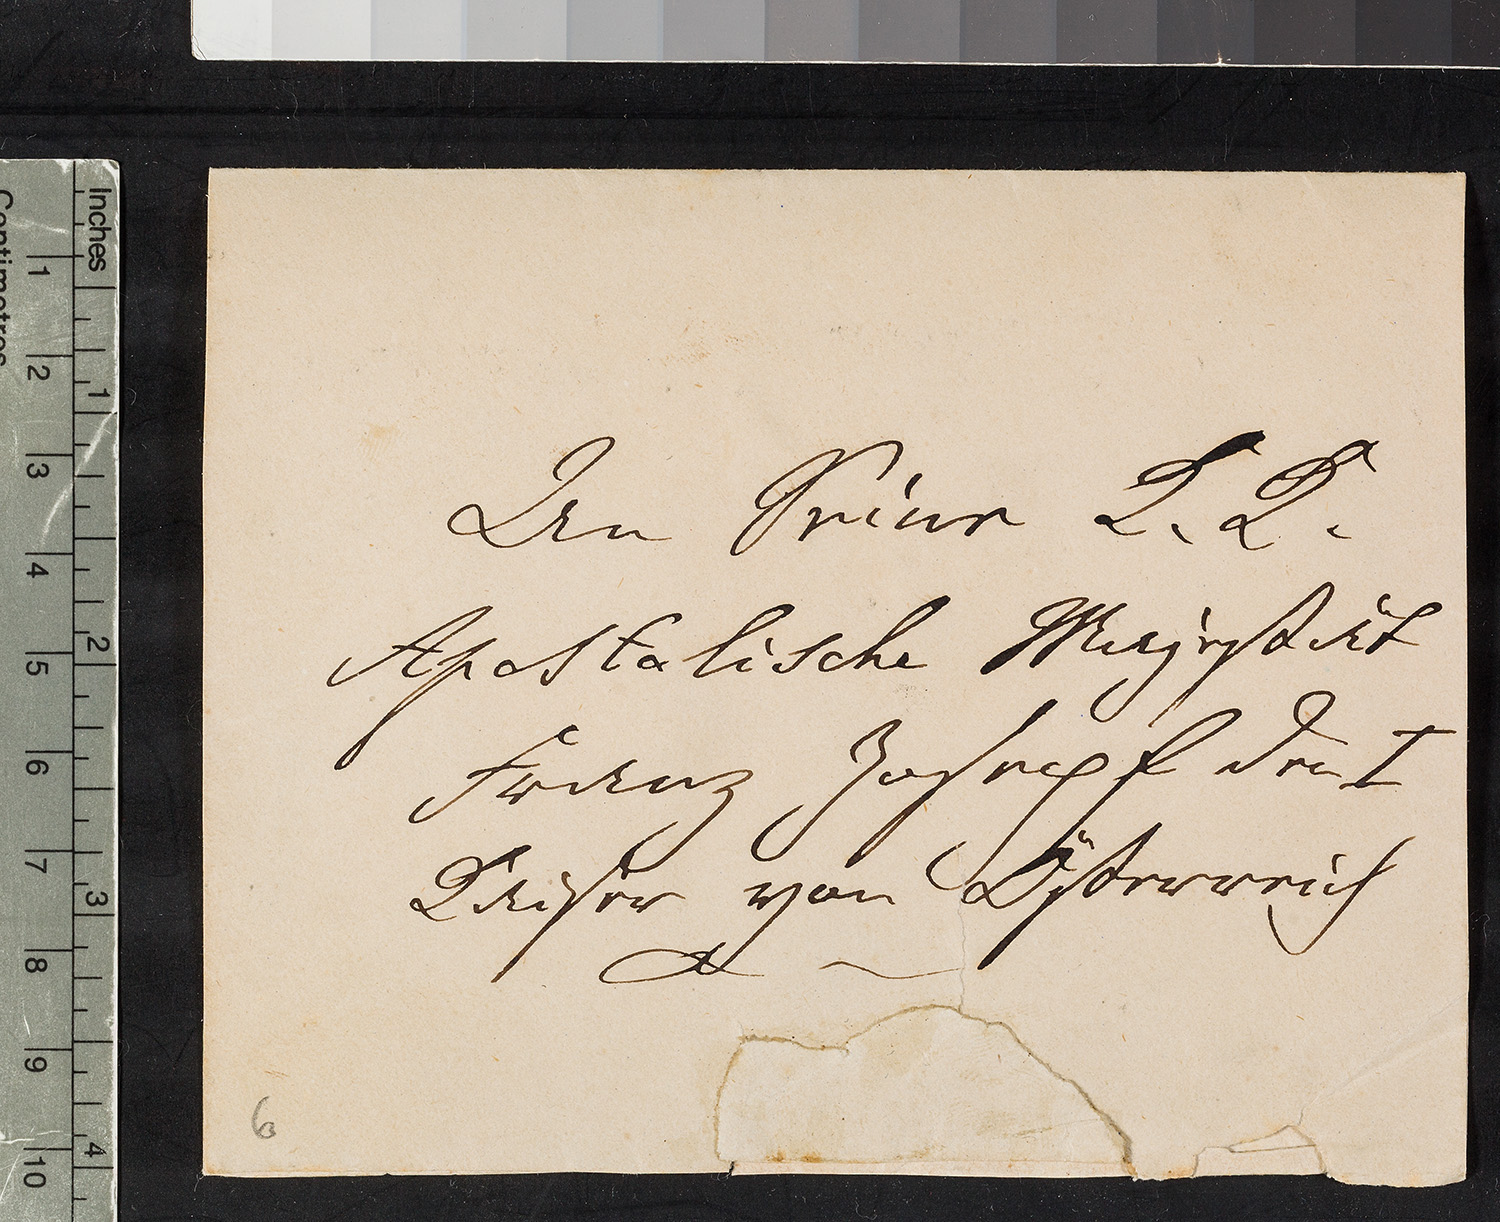 An Seine K. K.
Apostolische Majestät
Franz Joseph den I
Kaiser von Österreich
6
Inches
Centimetres
1
2
3
4
5
6
7
8
9
10
1
2
3
4